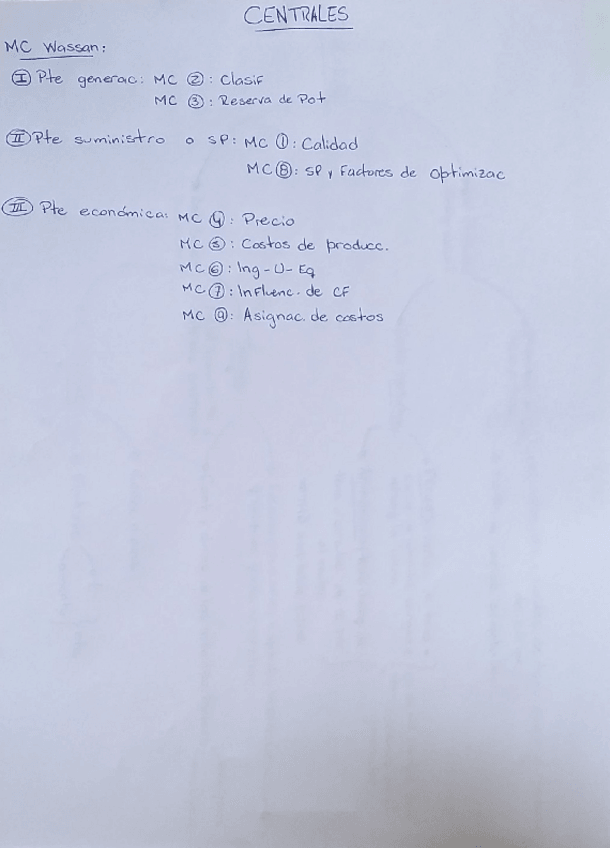 CENTRALES
MC Wassan:
I Pte generac: MC 2: Clasif
MC 3: Reserva de Pot
II Pte suministro o SP: MC 1: Calidad
MC 8: SP y Factores de Optimizac
III Pte económica: MC 4: Precio
MC 5: Costos de producc.
MC 6: Ing-U-Eq
MC 7: Influenc. de CF
MC 9: Asignac. de costos